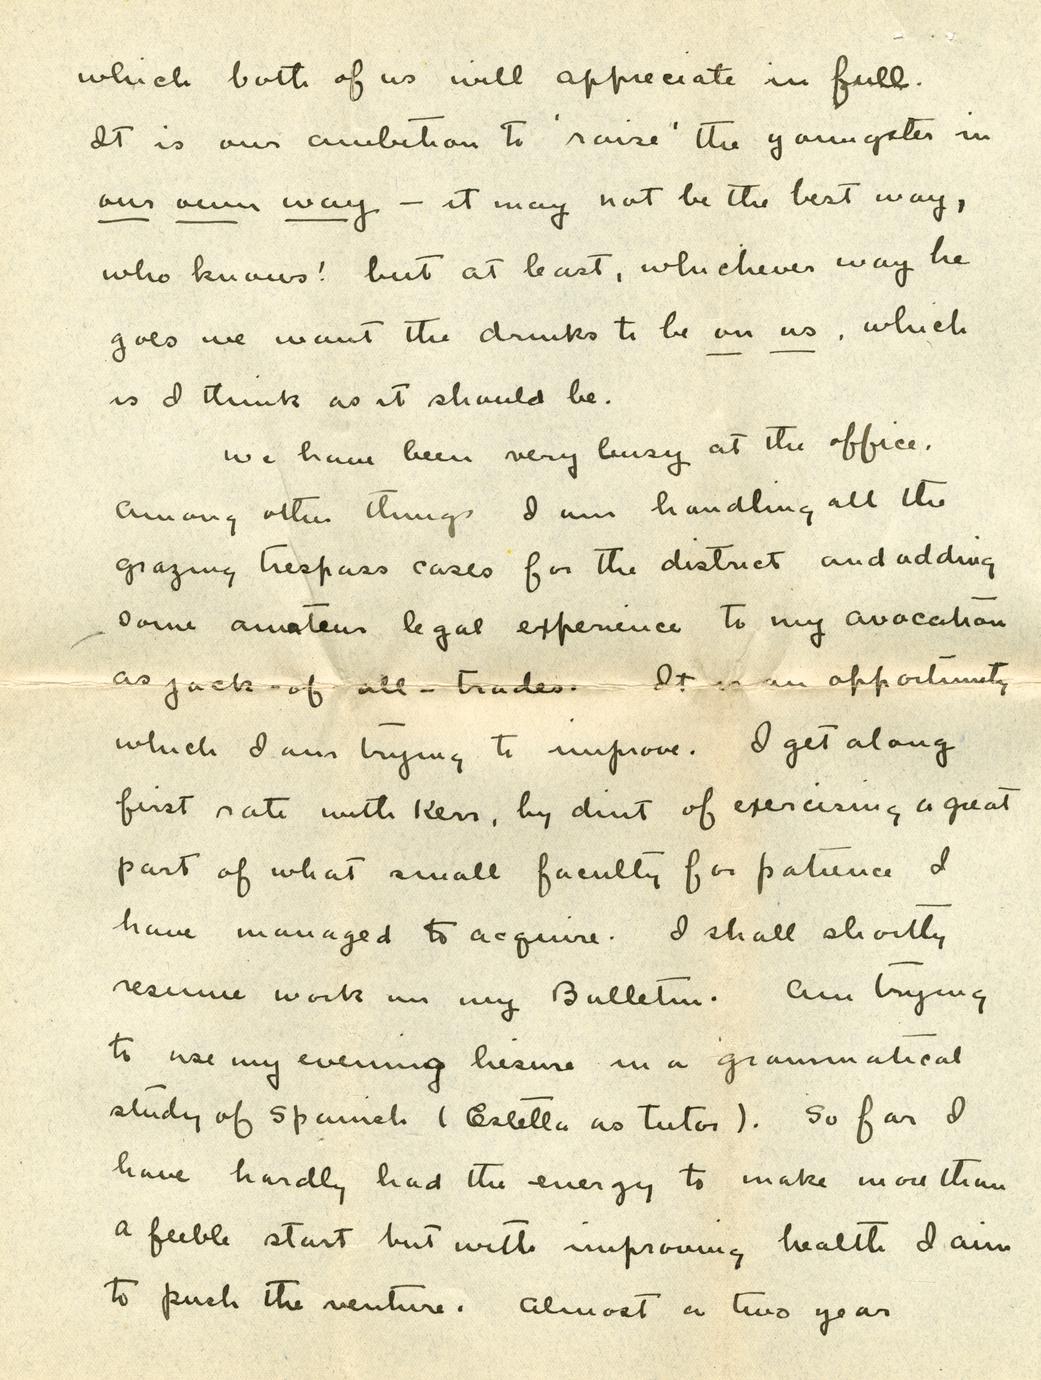 which both of us will appreciate in full.
It is our ambition to 'raise' the youngster in
our own way – it may not be the best way,
who knows! but at least, whichever way he
goes we want the drinks to be on us, which
is I think as it should be.
We have been very busy at the office.
Among other things I am handling all the
grazing trespass cases for the district and adding
some amateur legal experience to my avocation
as jack-of-all-trades. It is an opportunity
which I am trying to improve. I get along
first rate with Kerr, by dint of exercising a great
part of what small faculty for patience I
have managed to acquire. I shall shortly
resume work on my Bulletin. Am trying
to use my evening liesure in a grammatical
study of Spanish (Estella as tutor). So far I
have hardly had the energy to make more than
a feeble start but with improving health I aim
to push the venture. Almost a two year